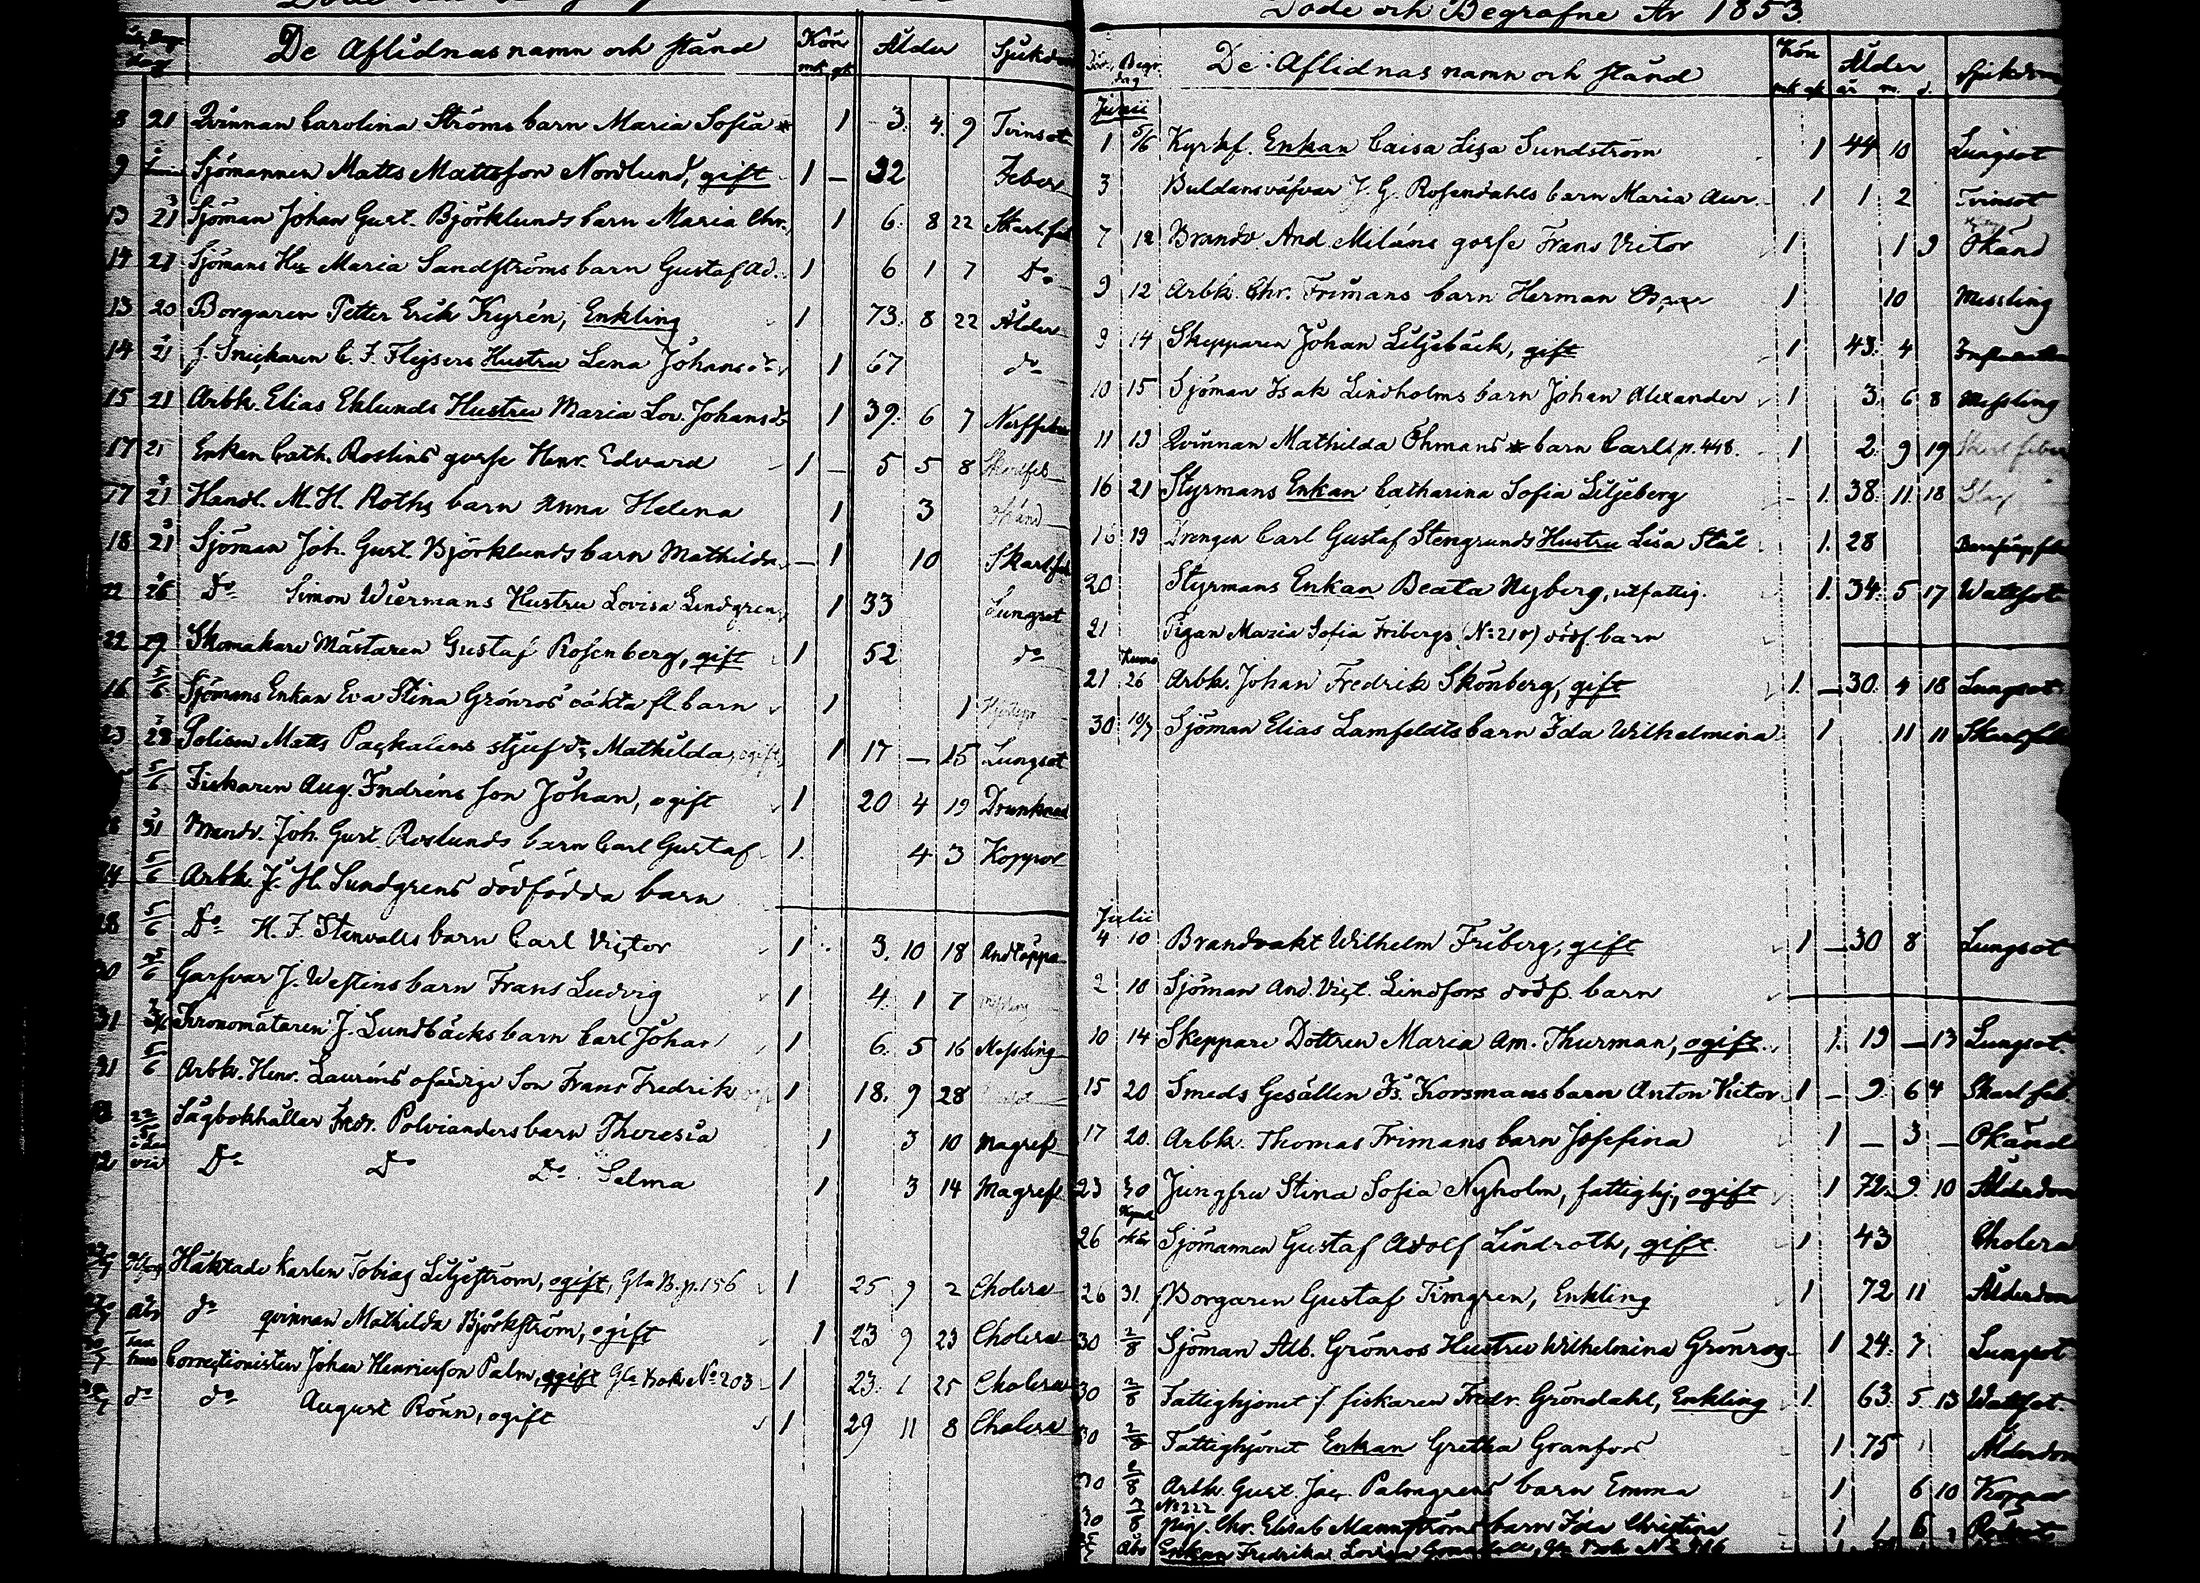 De Aflidnas namn och stånd Kön Ålder
mk qk
21 Qvinnan Carolina Ströms barn Maria Sofia 1 3. 4. 9 Tvinsot
9 Sjömannen Matts Mattsson Nordlund, gift 1 – 32 Feber
13 21 Sjöman Johan Gust. Björklunds barn Maria Chr. 1 6. 8 22
14 21 Sjömans Maria Sandströms barn Gustaf Ad. 1 6 1 7 Do
13 20 Borgaren Petter Erik Kyrén, Enkling 1 73. 8 22 Ålder
14 21 f. Snickaren C. F. Flejsers Hustru Lena Johansdr 1 67 do
15 21 Arbk. Elias Eklunds Hustru Maria Lov. Johansdr 1 39. 6 7
17 21 Enkan Cath. Roslins gosse Henr. Edvard 1 – 5 5 8
17 21 Handl. M. H. Roths barn Anna Helena 1 3 okänd
18 21 Sjöman Joh. Gust. Björklunds barn Mathilda – 1 10
22 26 Do Simon Wiermans Hustru Lovisa Lindgren 1 33 Lungsot
22 29 Skomakare Mästaren Gustaf Rosenberg, gift 1 52 do
16 5/6 Sjömans Enkan Eva Stina Grönros oäkta fl. barn 1 1
23 28 Polisen Matts stjufdr Mathilda, ogift 1 17 – 15 Lungsot
5/6 Fiskaren Aug. Indréns son Johan, ogift 1 20 4 19 Drunknad
31 Brandv. Joh. Gust. Roslunds barn Carl Gustaf 1. 4 3 Koppor
24 5/6 Arbk. J. H. Sundgrens dödfödda barn
28 5/6 Do H. F. Stenvalls barn Carl Victor 1 3. 10 18 Andtäppa
30 5/6 Garfvar J. Westins barn Frans Ludvig 1 4. 1 7
31 J. Lundbäcks barn Carl Johan 1 6. 5 16 Messling
31 5/6 Arbk. Henr. Lauréns ofärdige Son Frans Fredrik 1 18. 9 28
Sågbokhållar Fredr. Polvianders barn Theresia 1 3 10 Magref
12 Do Do Do Selma 1 3 14 Magref
Häktade karlen Tobias Liljeström, ogift, Gla B. p. 156 1 25 9 2 Cholera
Åbo do qvinnan Mathilda Björkström, ogift 1 23 9 23 Cholera
Correctionisten Johan Henricsson Palm, ogift Gla Bok No 203 1 23. 1 25 Cholera
do do August Rönn, ogift 1 29 11 8 Cholera
Döde och Begrafne År 1853.
Begr. dag De Aflidnas namn och stånd Kön mk qk Ålder år m. d. Sjukdom
Junii
1 5/6 Kyrkf. Enkan Caisa Lisa Sundström 1 44 10 Lungsot
3 Buldansväfvar J. G. Rosendahls barn Maria Aur. 1 1 2 Tvinsot
7 12 Brandv. And Miléns gosse Frans Victor 1 1 9 Okänd
9 12 Arbk. Chr. Frimans barn Herman 1 10 Messling
9 14 Skepparen Johan Liljebäck, gift 1 43. 4
10 15 Sjöman Isak Lindholms barn Johan Alexander 1 3. 6 8 Messling
11 13 Qvinnan Mathilda Öhmans barn Carl p. 448. 1 2. 9 19
16 21 Styrmans Enkan Catharina Sofia Liljeberg – 1. 38. 11. 18 Slag
16 19 Drengen Carl Gustaf Stengrunds Hustru Lisa Stål 1. 28
20 Styrmans Enkan Beata Nyberg, utfattig. 1. 34. 5 17 Wattsot
21 Pigan Maria Sofia Fribergs (No 210) dödf. barn
21 26 Arbk. Johan Fredrik Skönberg, gift 1. – 30. 4 18 Lungsot
30 10/7 Sjöman Elias Lamfeldts barn Ida Wilhelmina 1 11 11
Julii
4 10 Brandvakt Wilhelm Friberg, gift 1 – 30 8 Lungsot
2 10 Sjöman And. Vict. Lindfors dödf. barn
10 14 Skeppare Dottren Maria Am. Thurman, ogift 1. 19 – 13 Lungsot
15 20 Smeds Gesällen Fs. Korsmans barn Anton Victor 1 – 9. 6 4 Skarl feb.
17 20. Arbk. Thomas Frimans barn Josefina 1 – 3 – Okänd
23 30 Jungfru Stina Sofia Nyholm, fattighj, ogift 1 72. 9 10 Ålderdom
26 Sjömannen Gustaf Adolf Lindroth, gift. 1 43 Cholera
26 31. Borgaren Gustaf Timgren, Enkling 1 72 11 Ålderdom
30 2/8 Sjöman Alb. Grönros Hustru Wilhelmina Grönros 1 24. 7 Lungsot
30 2/8 Fattighjonet f. fiskaren Fredr. Gröndahl, Enkling 1. 63. 5 13 Wattsot
30 2/8 Fattighjonet Enkan Gretha Granfors 1 75 Ålderdom
30 2/8 Arbk. Gust. Jac. Palmgrens barn Emma 1 6 10 Koppor
No 222
30 Pig. Chr. Elisab Mannströms barn Ida Christina 1 1 6
Åbo Enkan Fredrika Lovisa